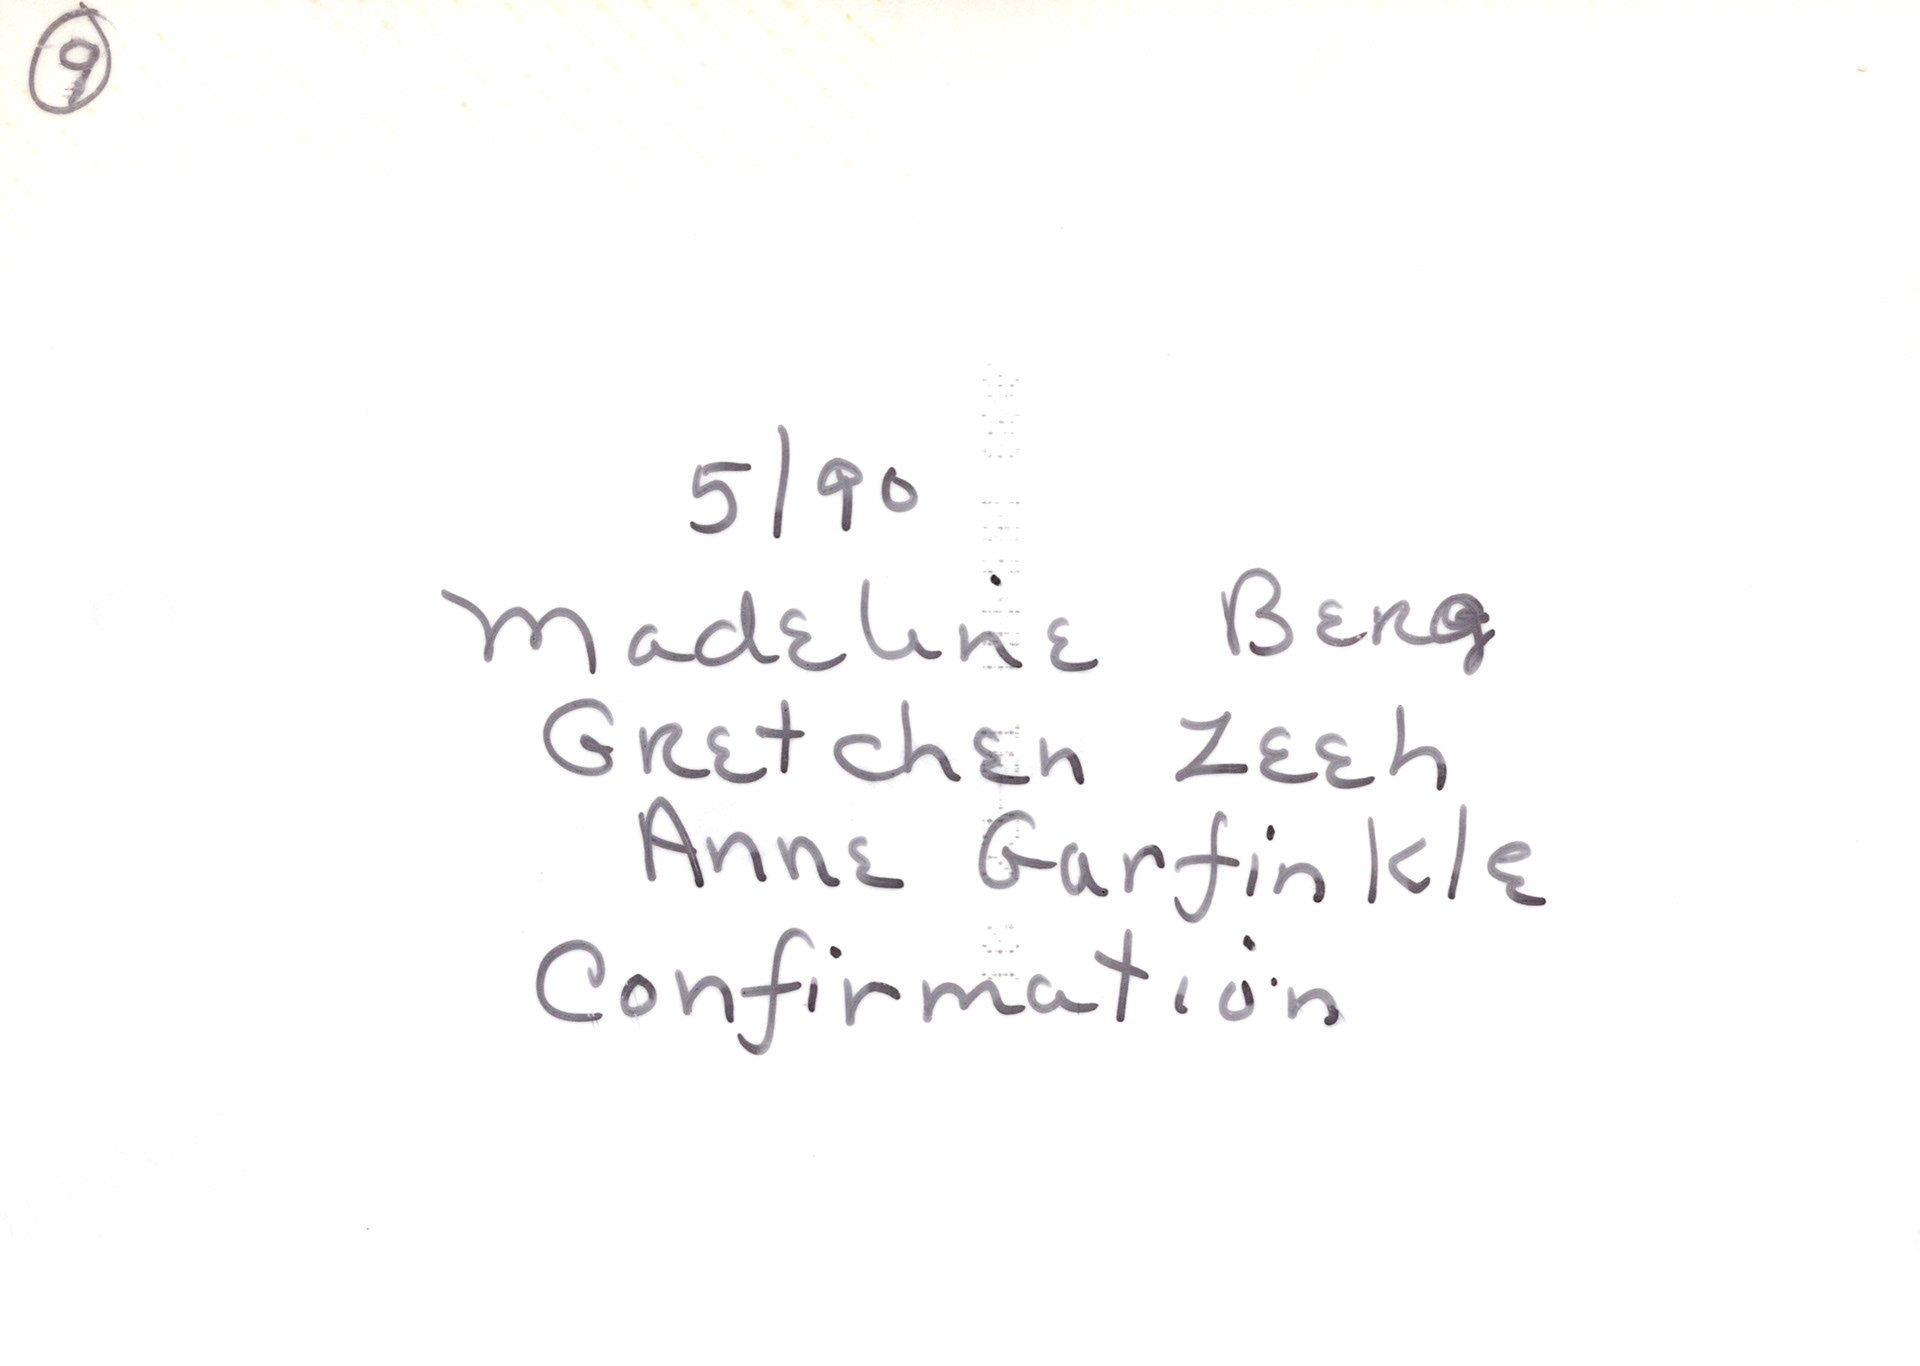 9
5/90
Madeline Berg
Gretchen Zeeh
Anne Garfinkle
Confirmation